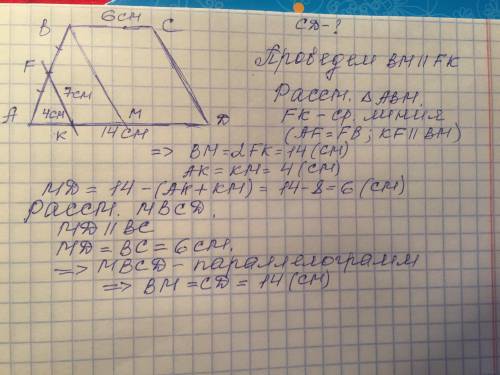 6СМ
B
C
F
7СМ
4СМ
A
K
M
14СМ
D
CD-?
Проведем BM||FK
Рассм. △ABM.
FK - ср. линия
(AF=FB; KF||BM)
=> BM=2FK=14(СМ)
AK=KM=4(СМ)
MD=14-(AK+KM)=14-8=6(СМ)
Рассм. MBCD.
MD||BC
MD=BC=6СМ.
=> MBCD-параллелограмм
=> BM=CD=14(СМ)